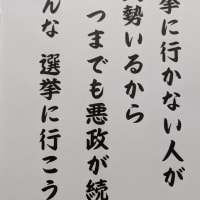 挙に行かない人が
勢いるから
つまでも悪政が続
んな 選挙に行こう